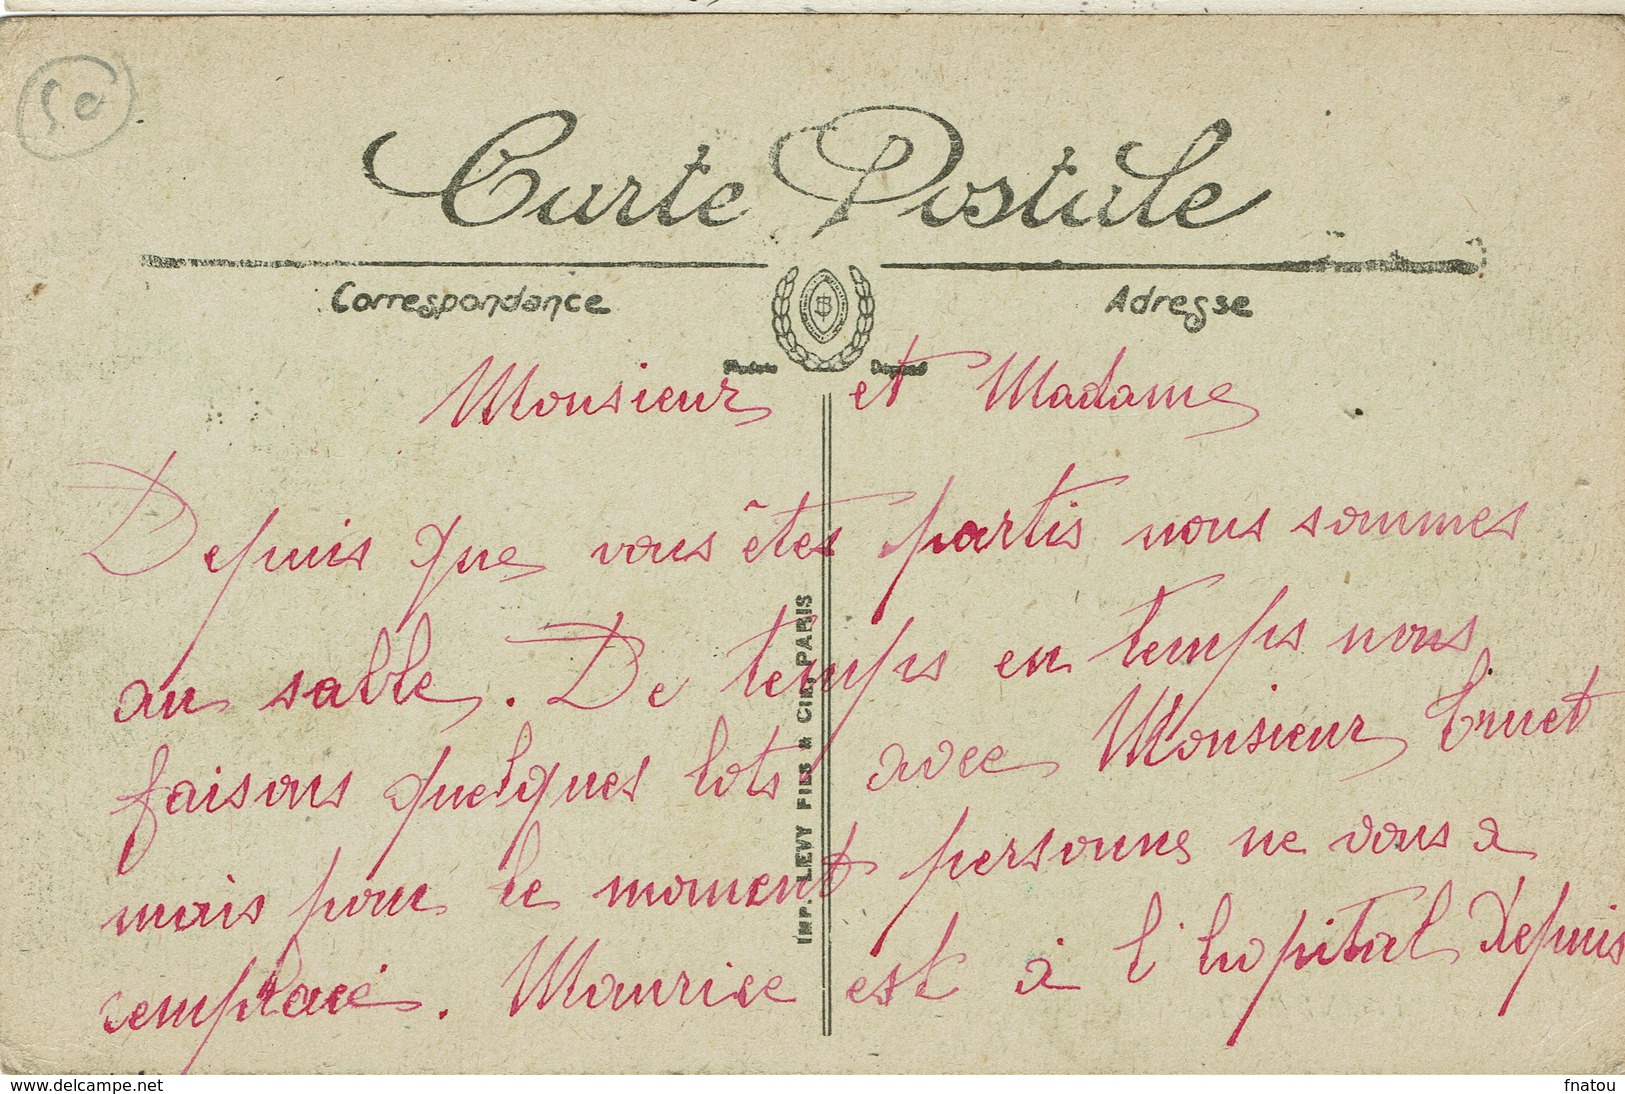 50
Carte Postale
Correspondance
Adresse
Monsieur et Madame
Depuis que vous êtes partis nous sommes
au sable. De temps en temps nous
faisons quelques lots avec Monsieur
mais pour le moment personne ne vous a
remplacé. Maurice est à l'hopital Depuis
IMP. LEVY FILS & CIE, PARIS
www.delcampe.net
fnatou